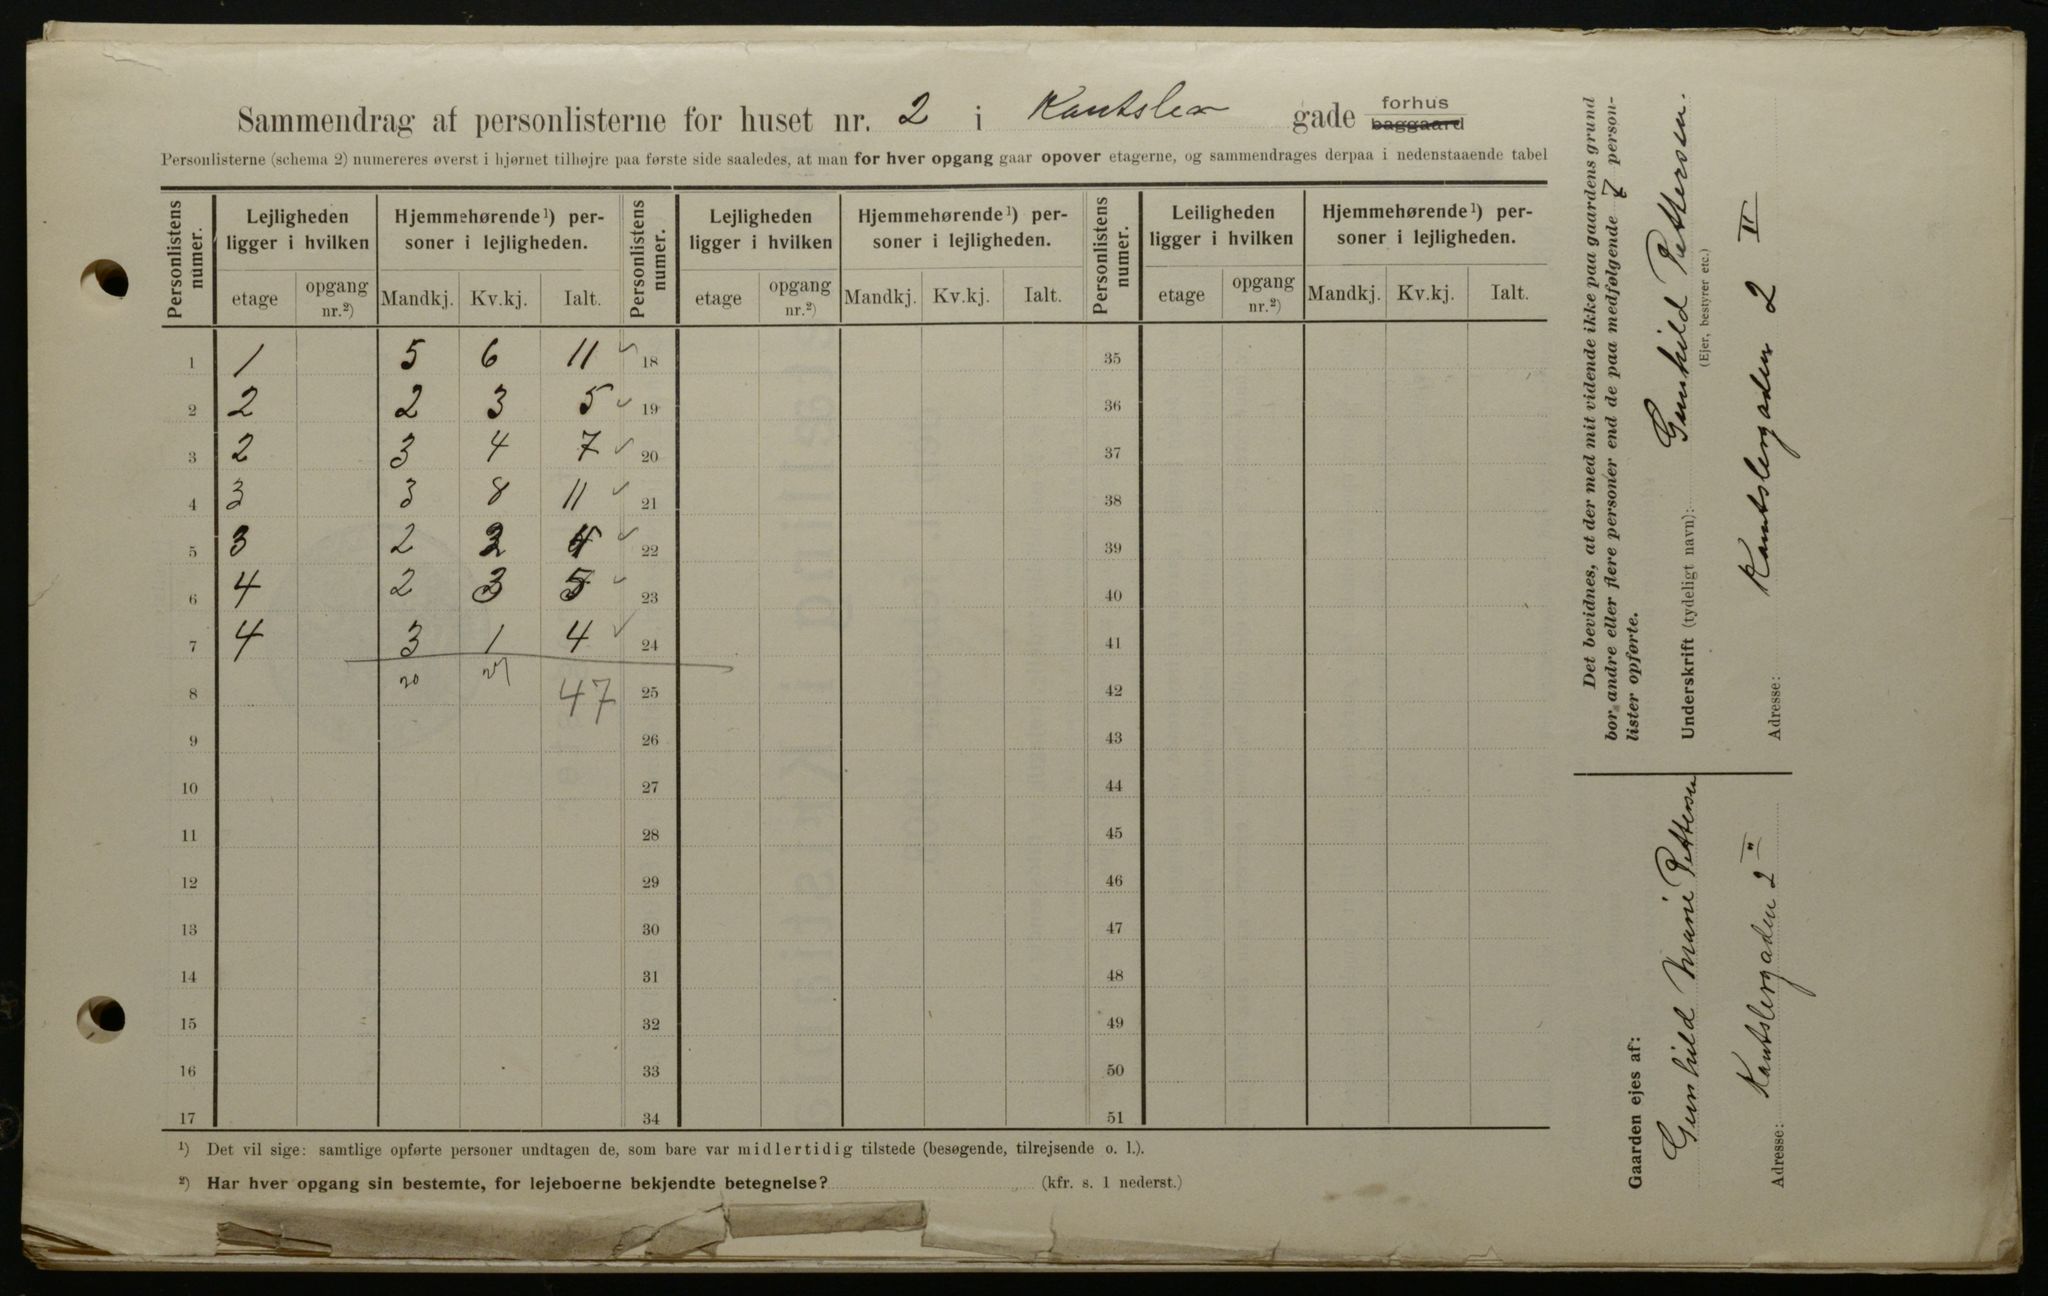 Sammendrag af personlisterne for huset nr. 2 i Kantsler gade forhus baggaard
Personlisterne (schema 2) numereres øverst i hjørnet tilhøjre paa første side saaledes, at man for hver opgang gaar opover etagerne, og sammendrages derpaa i nedenstaaende tabel
Personlistens numer. Lejligheden ligger i hvilken Hjemmehørende¹) personer i lejligheden. Personlistens numer. Lejligheden ligger i hvilken Hjemmehørende¹) personer i lejligheden. Personlistens numer. Leiligheden ligger i hvilken Hjemmehørende¹) personer i lejligheden.
etage opgang nr.²) Mandkj. Kv.kj. Ialt. etage opgang nr.²) Mandkj. Kv.kj. Ialt. etage opgang nr.²) Mandkj. Kv.kj. Ialt.
1 1 5 6 11 18 35
2 2 2 3 5 19 36
3 2 3 4 7 20 37
4 3 3 8 11 21 38
5 3 2 2 4 22 39
6 4 2 3 5 23 40
7 4 3 1 4 24 41
20 27
8 47 25 42
9 26 43
10 27 44
11 28 45
12 29 46
13 30 47
14 31 48
15 32 49
16 33 50
17 34 51
¹) Det vil sige: samtlige opførte personer undtagen de, som bare var midlertidig tilstede (besøgende, tilrejsende o. l.).
²) Har hver opgang sin bestemte, for lejeboerne bekjendte betegnelse? (kfr. s. 1 nederst.)
Det bevidnes, at der med mit vidende ikke paa gaardens grund
bor andre eller flere personer end de paa medfølgende 7 person-
lister opførte.
Underskrift (tydeligt navn): Gunhild Pettersen.
(Ejer, bestyrer etc.)
Adresse: Kantslergaden 2 II
Gaarden ejes af:
Gunhild Marie Pettersen
Adresse: Kantslergaden 2 II